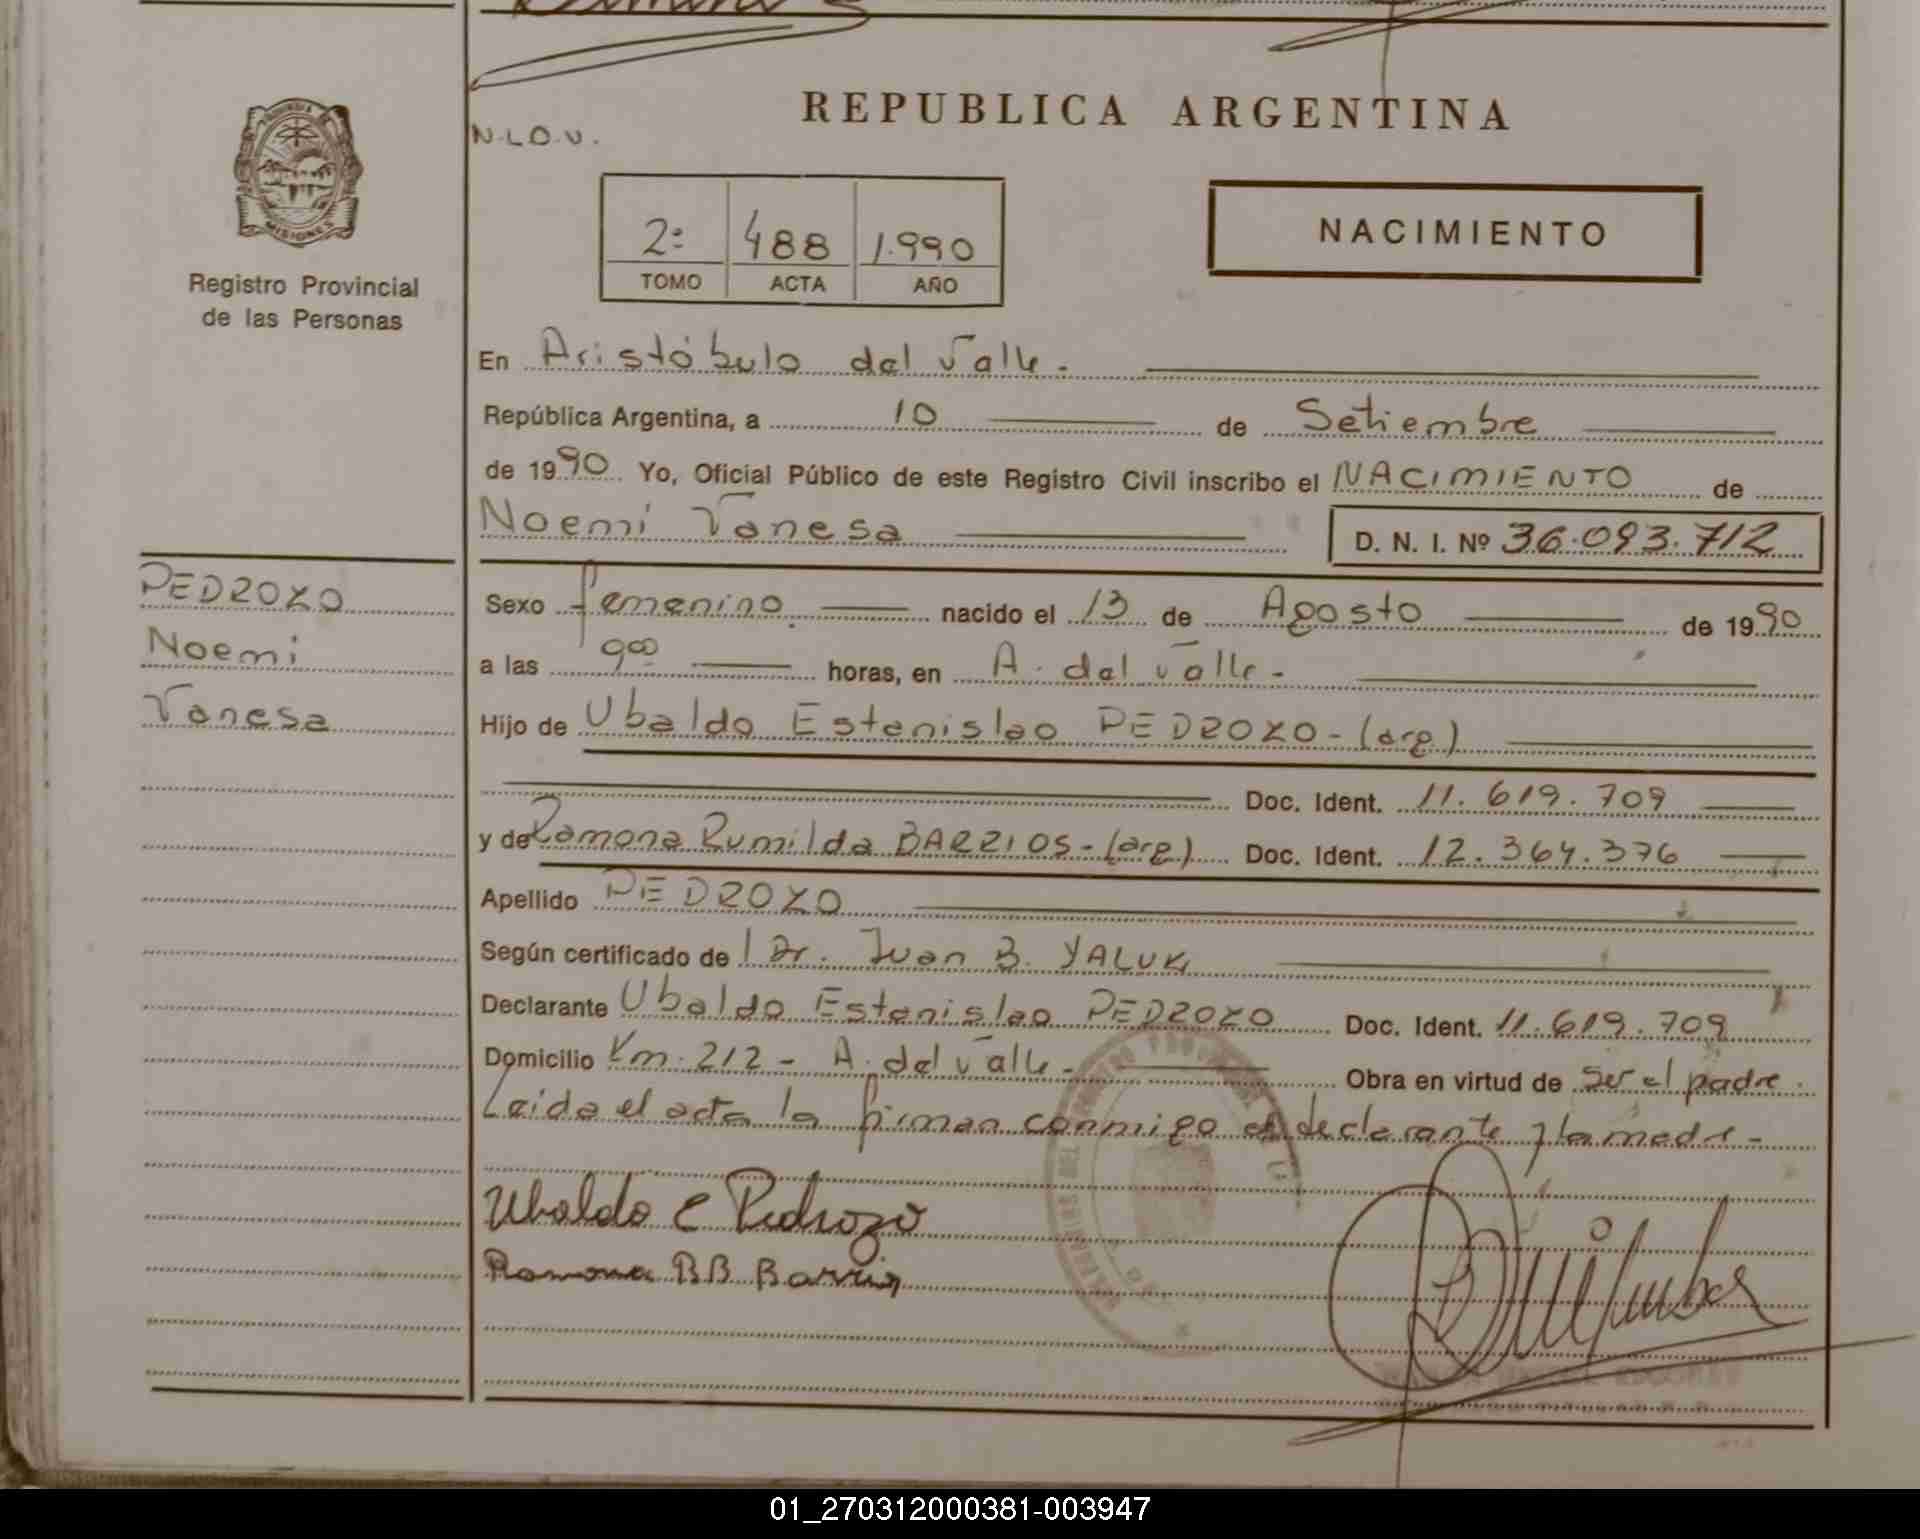 REPUBLICA ARGENTINA
N.L.O.V.
MISIONES
Registro Provincial
de las Personas
2º 488 1.990
TOMO ACTA AÑO
NACIMIENTO
En Aristóbulo del Valle.
República Argentina, a 10 de Setiembre
de 1990. Yo, Oficial Público de este Registro Civil inscribo el NACIMIENTO de
Noemí Vanesa D. N. I. Nº 36.093.712
PEDROZO
Noemi
Vanesa
Sexo femenino nacido el 13 de Agosto de 1990
a las 9oo horas, en A. del Valle.
Hijo de Ubaldo Estanislao PEDROZO - (arg)
Doc. Ident. 11.619.709
y de Ramona Rumilda BARRIOS - (arg) Doc. Ident. 12.364.376
Apellido PEDROZO
Según certificado del Dr. Juan B. YALUK
Declarante Ubaldo Estanislao PEDROZO Doc. Ident. 11.619.709
Domicilio Km. 212 - A. del Valle. Obra en virtud de ser el padre.
Leida el acta la firman conmigo el declarante y la madre -
Ubaldo E Pedrozo
Ramona BB Barrios
01_270312000381-003947